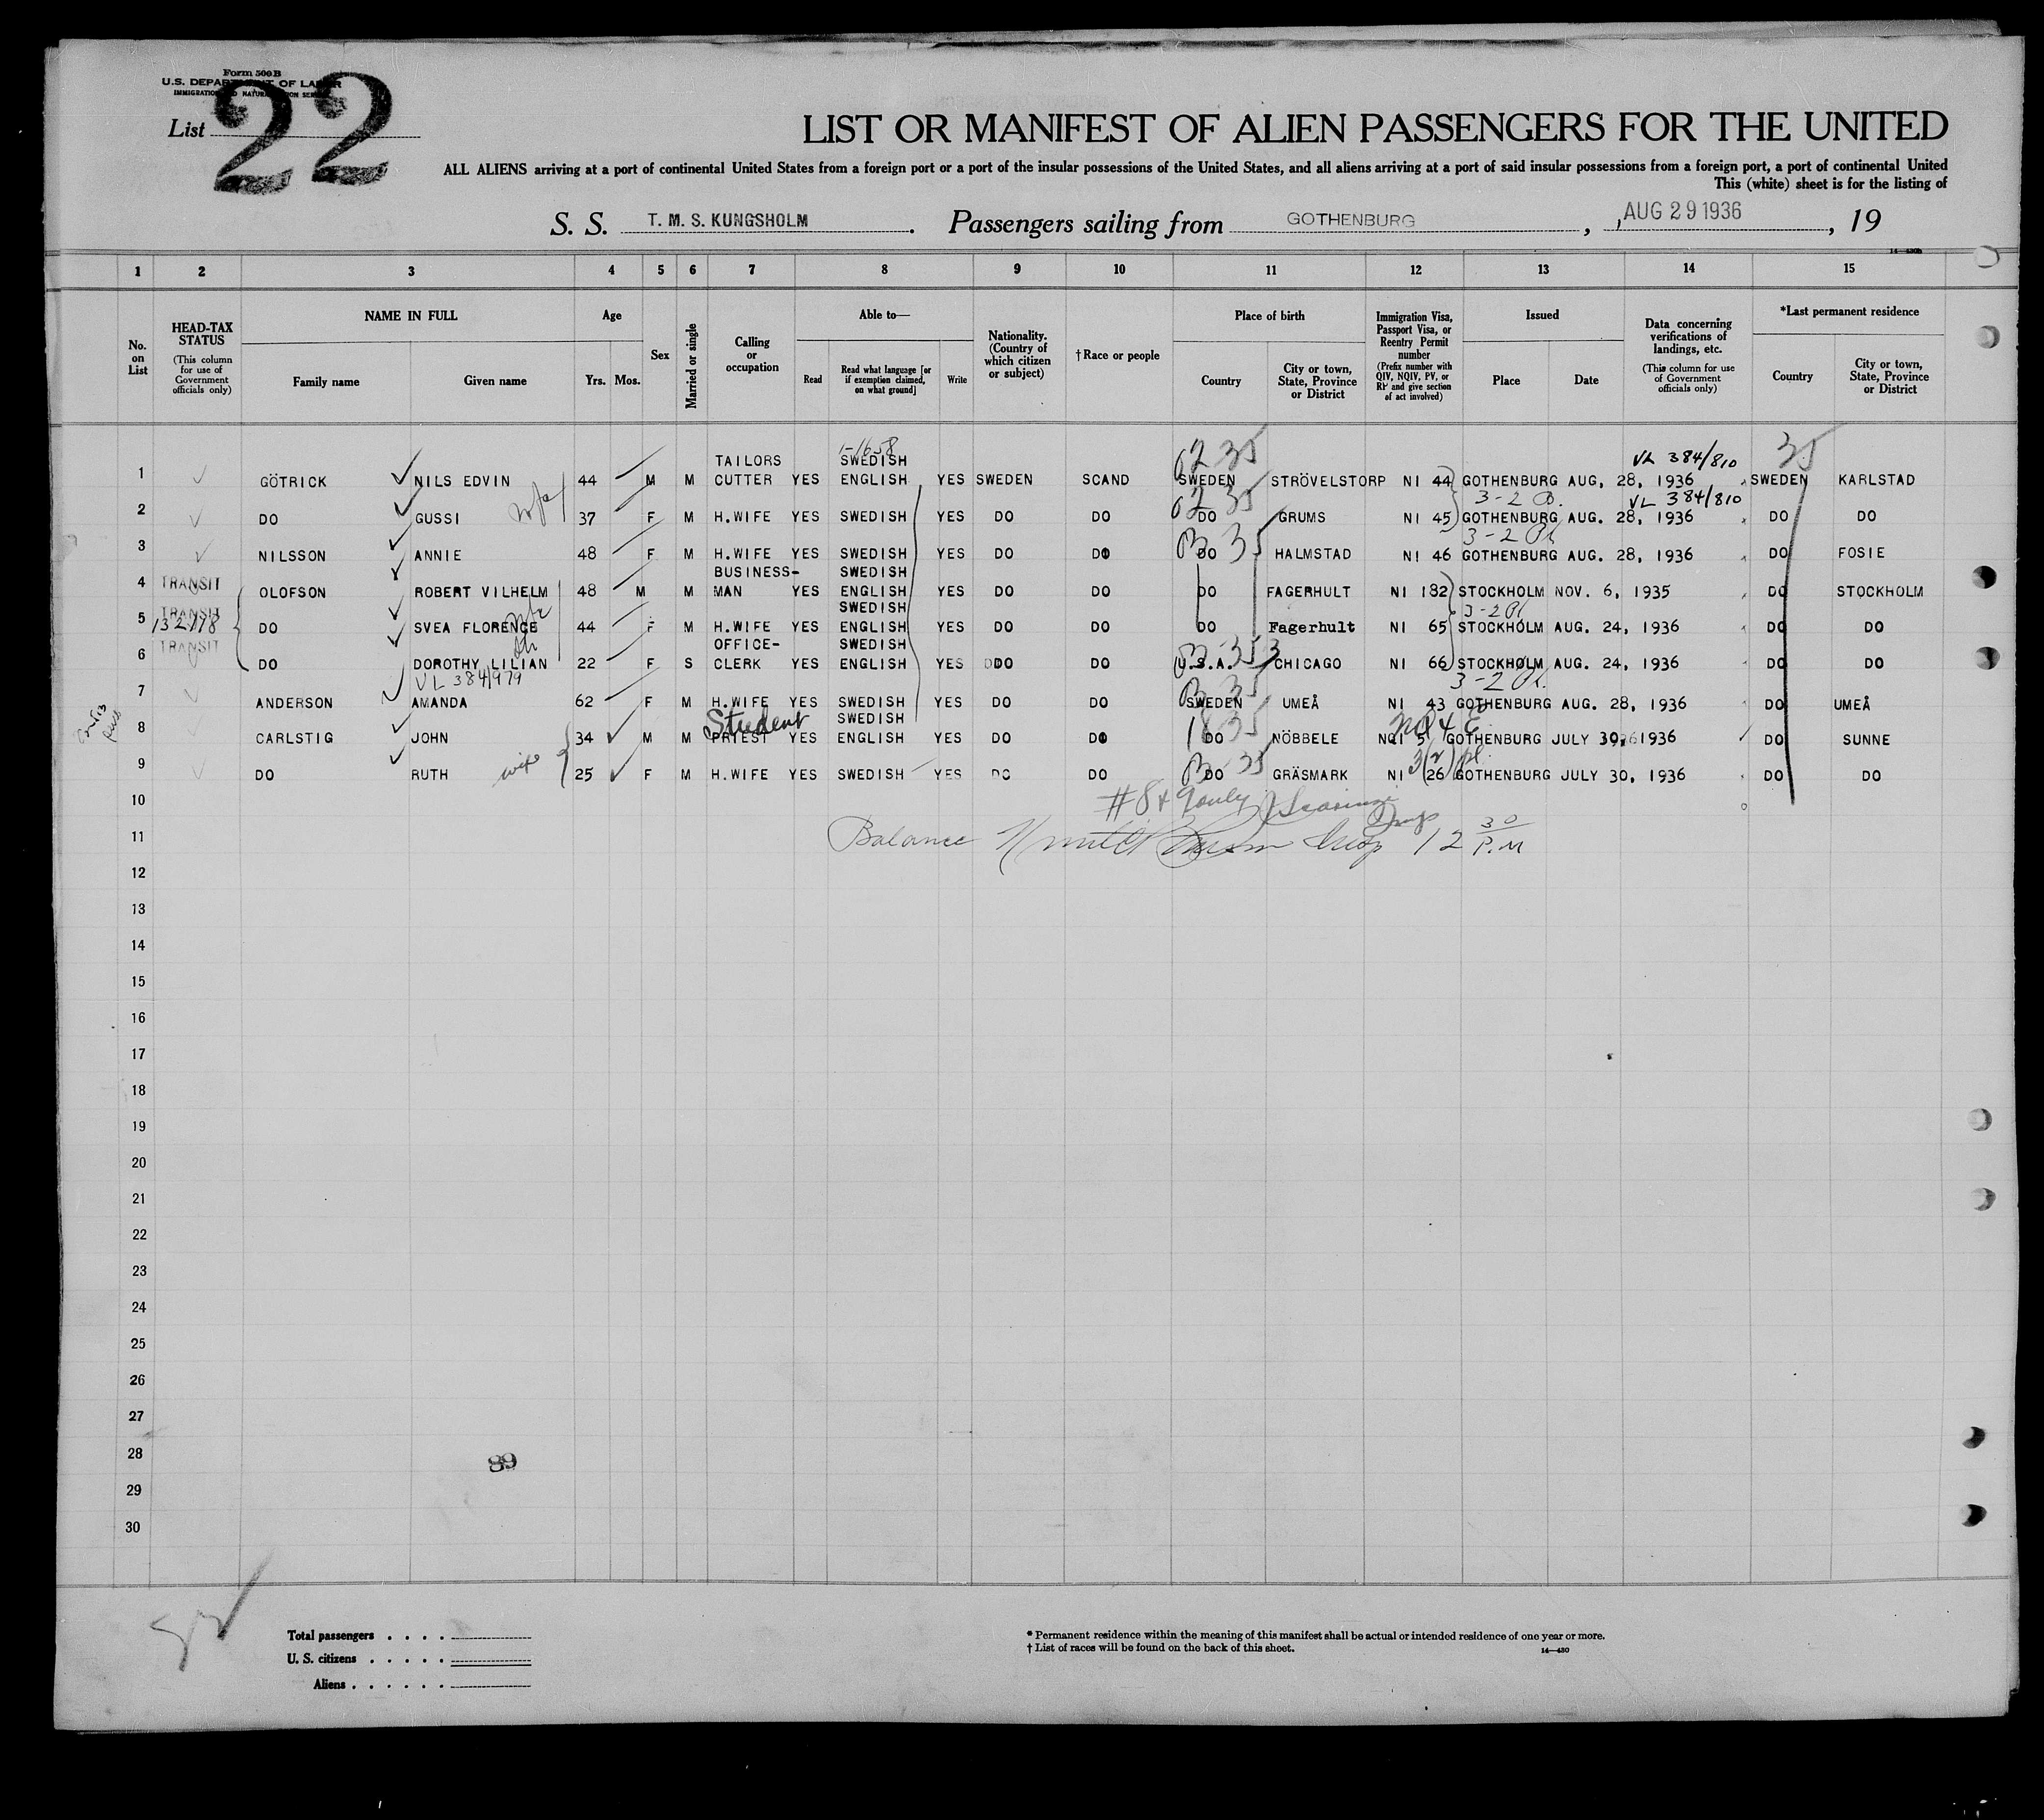 Form 500 B
U.S. DEPARTMENT OF LABOR
IMMIGRATION AND NATURALIZATION SERVICE
List 22
LIST OR MANIFEST OF ALIEN PASSENGERS FOR THE UNITED
ALL ALIENS arriving at a port of continental United States from a foreign port or a port of the insular possessions of the United States, and all aliens arriving at a port of said insular possessions from a foreign port, a port of continental United
This (white) sheet is for the listing of
S. S. T. M. S. KUNGSHOLM . Passengers sailing from GOTHENBURG , AUG 29 1936 , 19
14—430b
1 2 3 4 5 6 7 8 9 10 11 12 13 14 15
No. on List
HEAD-TAX STATUS (This column for use of Government officials only)
NAME IN FULL
Family name Given name
Age
Yrs. Mos.
Sex
Married or single
Calling or occupation
Able to—
Read Read what language [or if exemption claimed, on what ground] Write
Nationality. (Country of which citizen or subject)
†Race or people
Place of birth
Country City or town, State, Province or District
Immigration Visa, Passport Visa, or Reentry Permit number (Prefix number with QIV, NQIV, PV, or RP and give section of act involved)
Issued
Place Date
Data concerning verifications of landings, etc. (This column for use of Government officials only)
*Last permanent residence
Country City or town, State, Province or District
1-1658 62 35 VL 384/810 35
TAILORS SWEDISH
1 GÖTRICK NILS EDVIN 44 M M CUTTER YES ENGLISH YES SWEDEN SCAND SWEDEN STRÖVELSTORP NI 44 GOTHENBURG AUG, 28, 1936 SWEDEN KARLSTAD
wife 62 35 3-2 VL 384/810
2 DO GUSSI 37 F M H.WIFE YES SWEDISH YES DO DO DO GRUMS NI 45 GOTHENBURG AUG. 28, 1936 DO DO
35 3-2
3 NILSSON ANNIE 48 F M H.WIFE YES SWEDISH YES DO DO DO HALMSTAD NI 46 GOTHENBURG AUG. 28, 1936 DO FOSIE
BUSINESS- SWEDISH
4 TRANSIT OLOFSON ROBERT VILHELM 48 M M MAN YES ENGLISH YES DO DO DO FAGERHULT NI 182 STOCKHOLM NOV. 6, 1935 DO STOCKHOLM
TRANSIT SWEDISH 3-2
5 132118 DO SVEA FLORENCE 44 F M H.WIFE YES ENGLISH YES DO DO DO Fagerhult NI 65 STOCKHOLM AUG. 24, 1936 DO DO
TRANSIT OFFICE- SWEDISH
6 DO DOROTHY LILIAN 22 F S CLERK YES ENGLISH YES DO DO U.S.A. CHICAGO NI 66 STOCKHOLM AUG. 24, 1936 DO DO
VL 384/979 35 3-2
7 ANDERSON AMANDA 62 F M H.WIFE YES SWEDISH YES DO DO SWEDEN UMEÅ NI 43 GOTHENBURG AUG. 28, 1936 DO UMEÅ
Student SWEDISH 18 35
8 CARLSTIG JOHN 34 M M PRIEST YES ENGLISH YES DO DO DO NÖBBELE NQI 5 GOTHENBURG JULY 30, 1936 DO SUNNE
wife 35 3(2)
9 DO RUTH 25 F M H.WIFE YES SWEDISH YES DO DO DO GRÄSMARK NI 26 GOTHENBURG JULY 30, 1936 DO DO
10 #8 & 9 only
11 Balance Insp 12 30 P.M
12
13
14
15
16
17
18
19
20
21
22
23
24
25
26
27
28
89
29
30
Total passengers
U. S. citizens
Aliens
* Permanent residence within the meaning of this manifest shall be actual or intended residence of one year or more.
† List of races will be found on the back of this sheet.
14—430